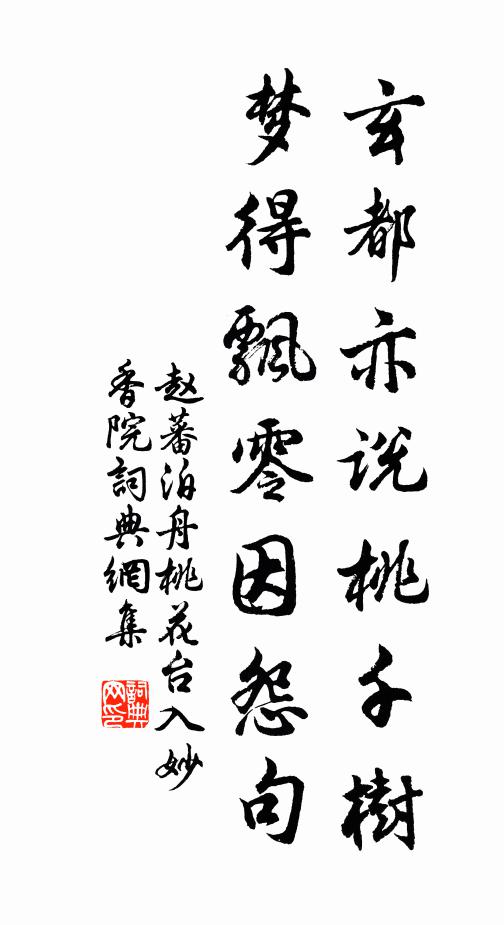 玄都亦说桃千樹
梦得飄零因怨句
赵蕃泊舟桃花台入妙
香院詞典網集
詞典
网印